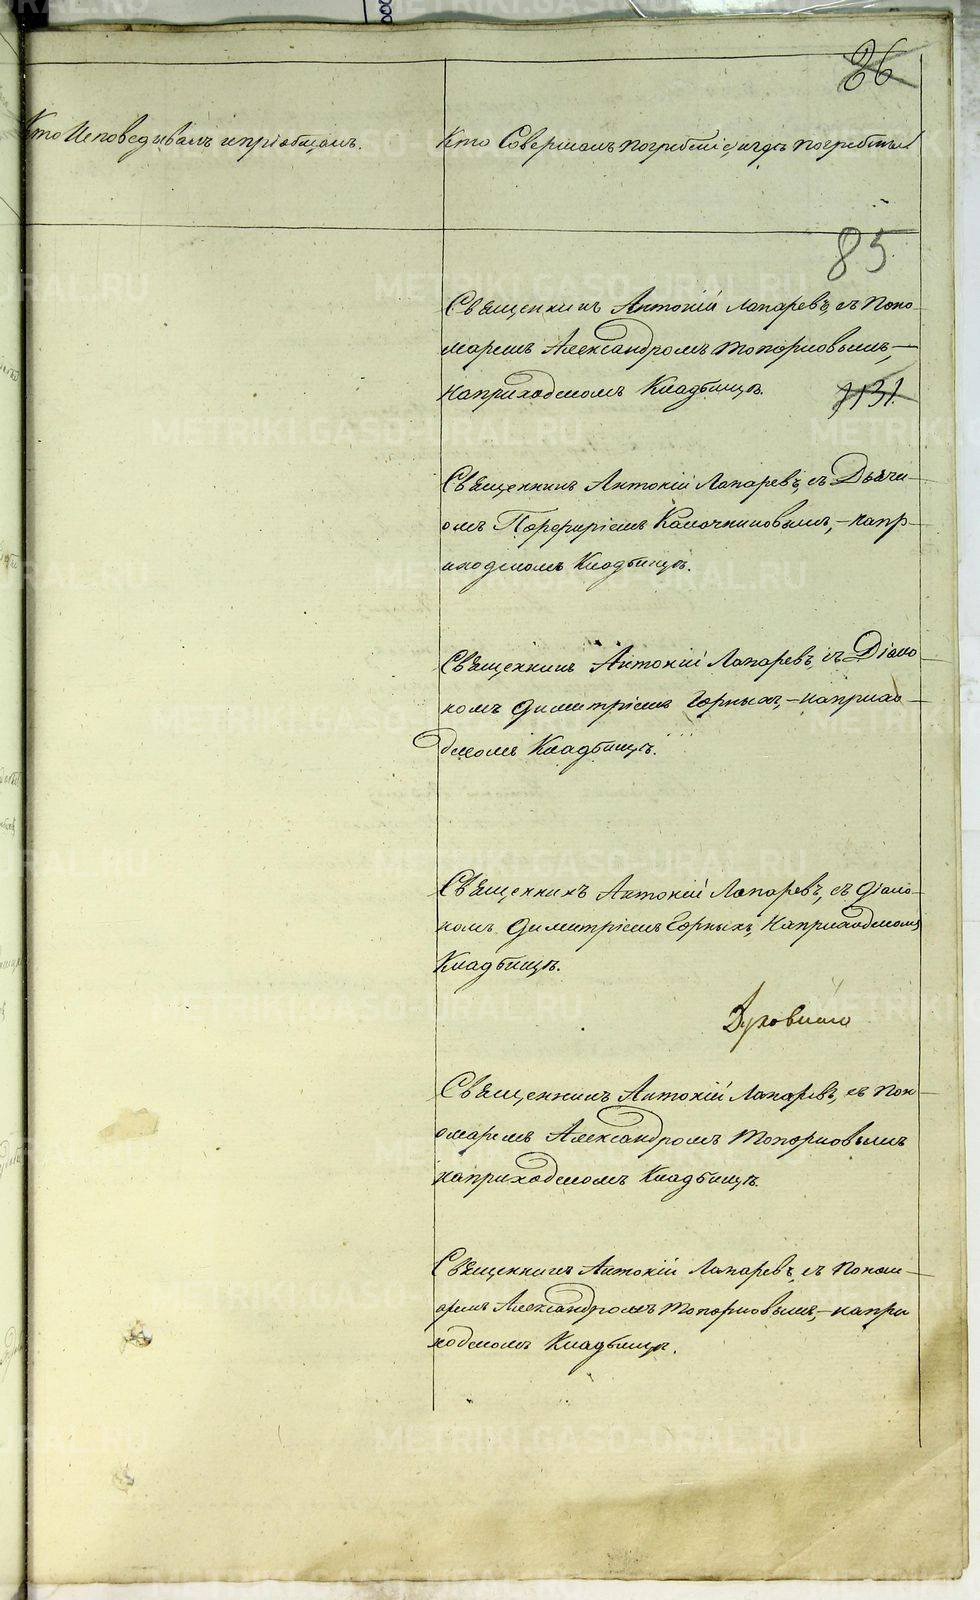 36
Кто Исповедывалъ ипріобщалъ.
Кто Совершалъ погребеніе, игдѣ погребены
85
Священникъ Антоній Лапаревъ, съ Поно-
маремъ Александромъ Топорковымъ,—
наприходскомъ Кладбищѣ.
Священникъ Антоній Лапаревъ, съ Дьячк-
омъ Порфиріемъ Колочниковымъ,—напр-
иходскомъ Кладбищѣ.
Священникъ Антоній Лапаревъ, съ Діако-
номъ Димитріемъ Горныхъ,—наприхо-
дскомъ Кладбищѣ.
Священникъ Антоній Лапаревъ, съ Діако-
номъ Димитріемъ Горныхъ, Наприходскомъ
Кладбищѣ.
Духовнаго
Священникъ Антоній Лапаревъ, съ Пон-
омаремъ Александромъ Топорковымъ
наприходскомъ Кладбищѣ.
Священникъ Антоній Лапаревъ, съ Поном-
аремъ Александромъ Топорковымъ,—напри
ходскомъ Кладбищѣ.
METRIKI.GASO-URAL.RU